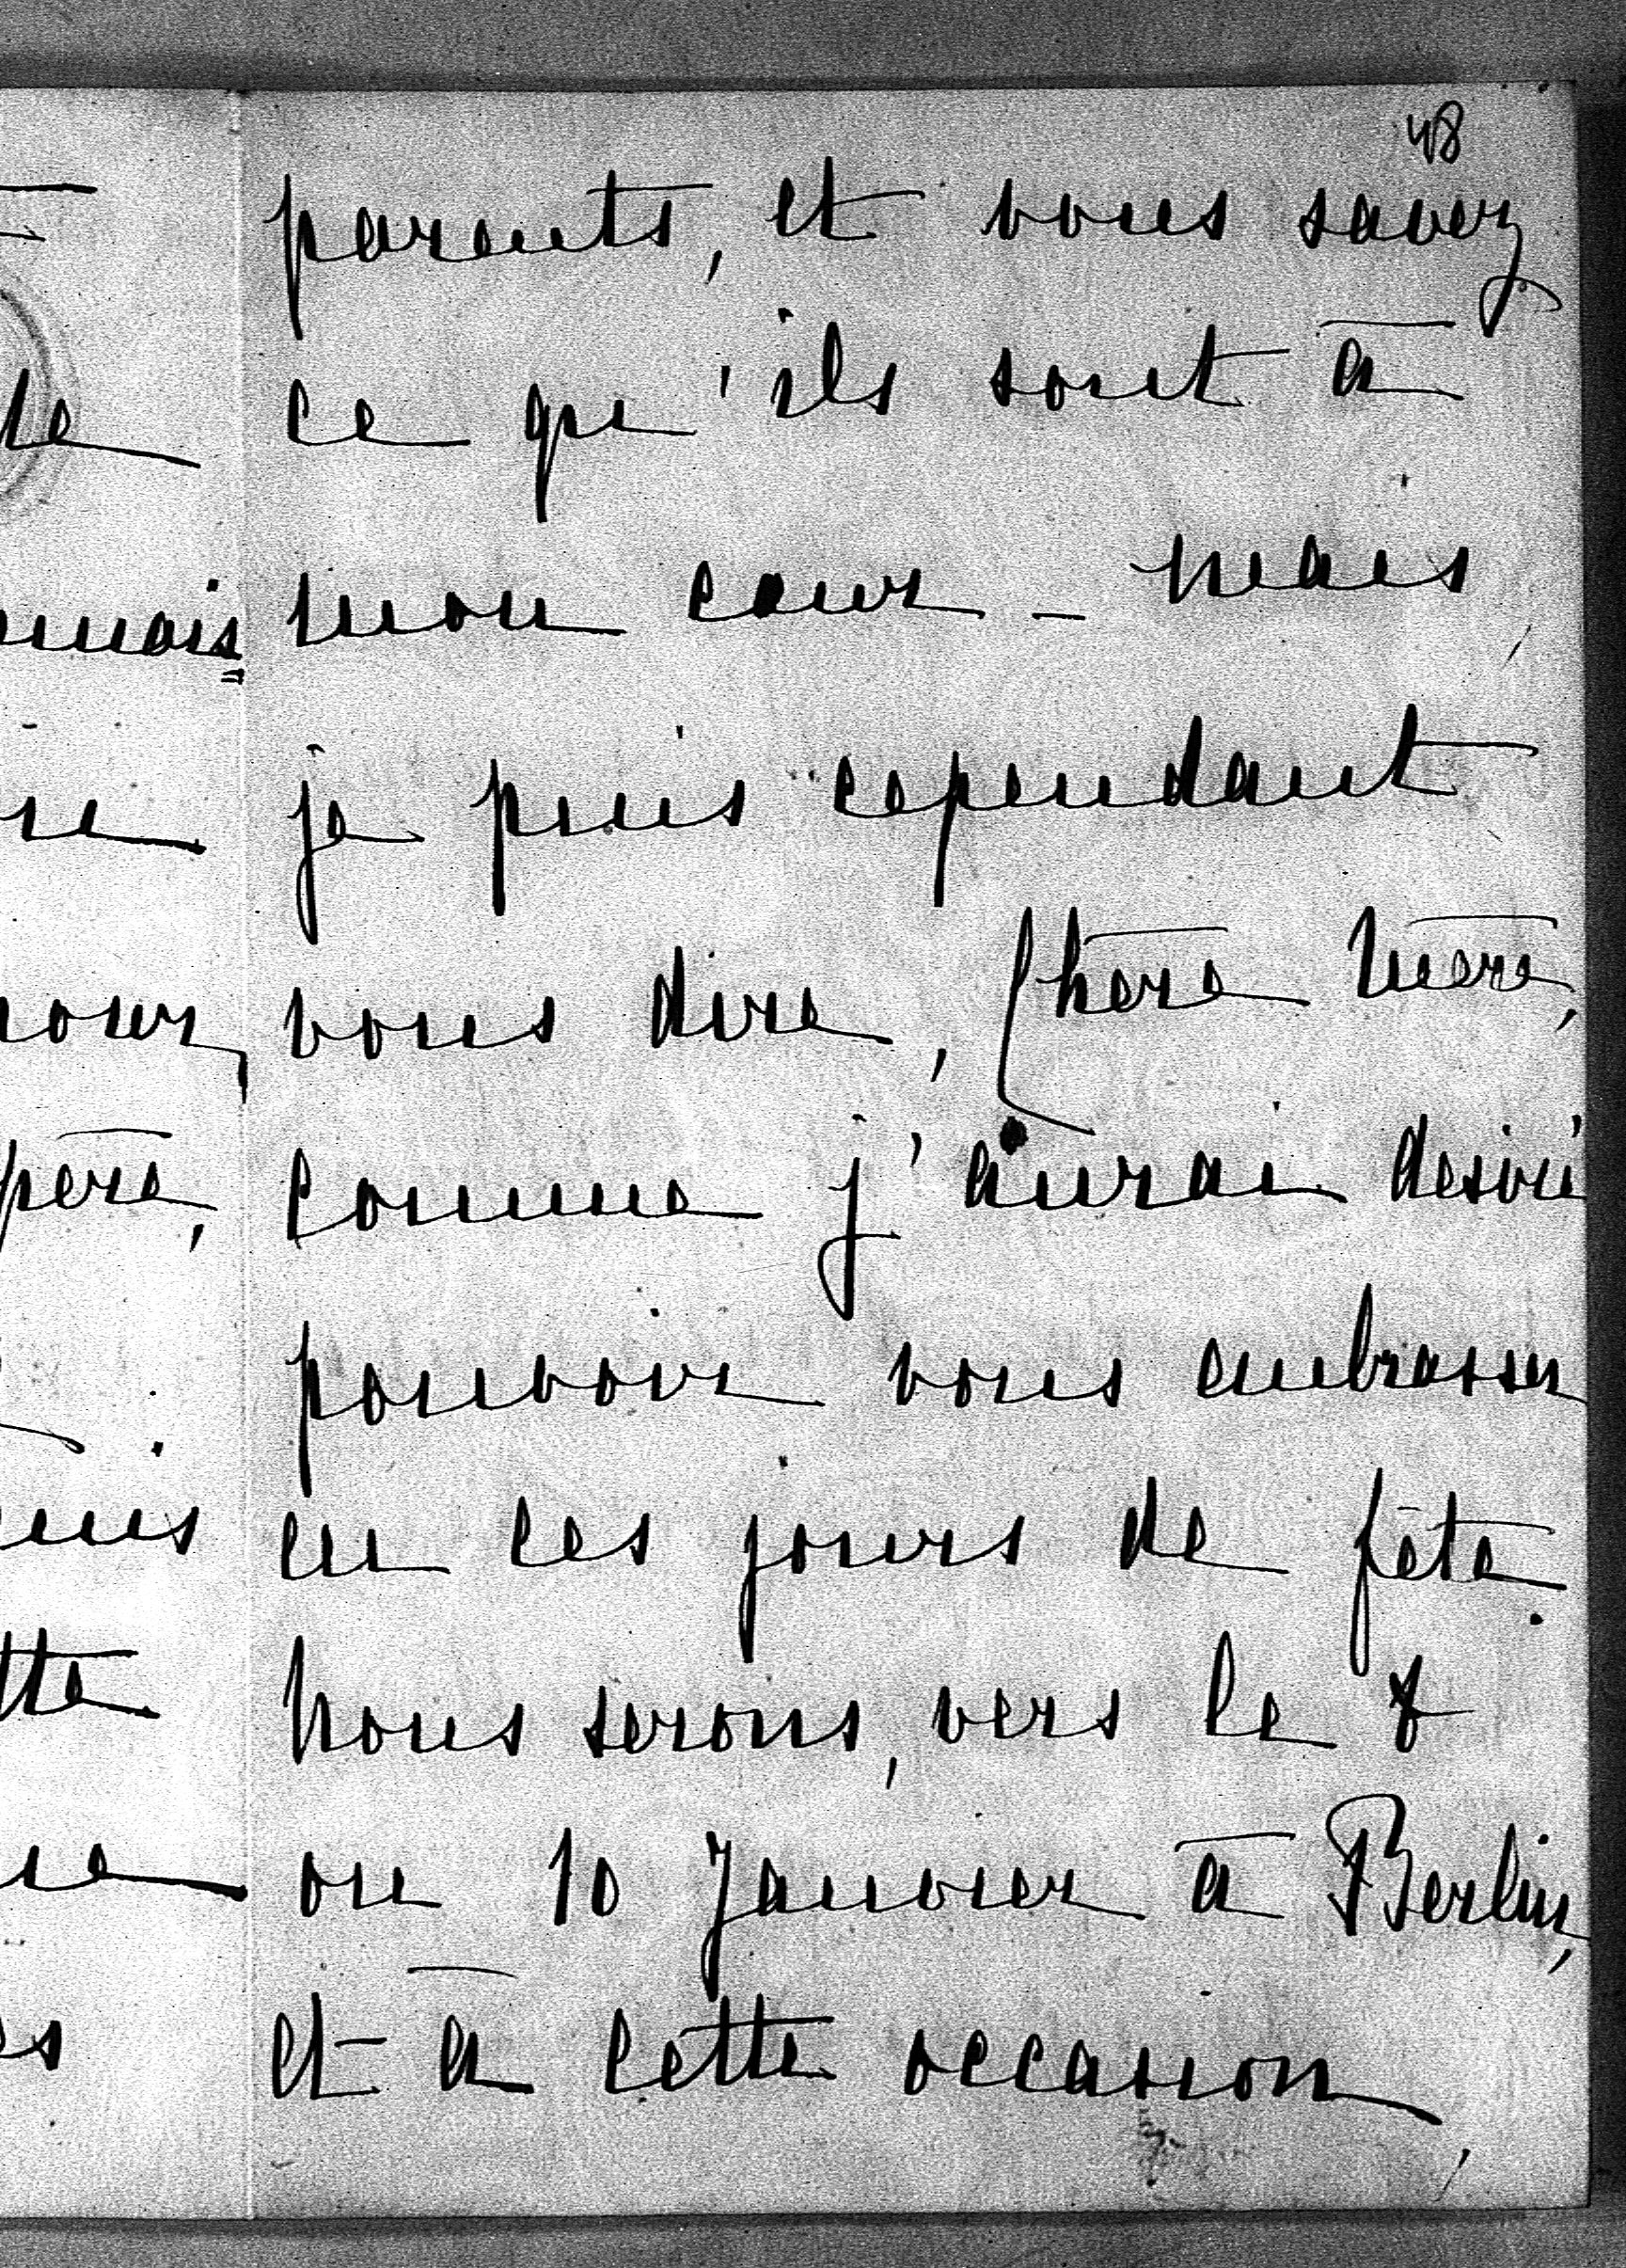 48
parents, et vous savez
ce qu'ils sont à
mon cœur - mais,
je puis cependant
vous dire, Chère Mère,
comme j'aurai désiré
pouvoir vous embrasser
en ces jours de fête.
Nous serons, vers le 8
ou 10 Janvier à Berlin,
et à cette occasion,